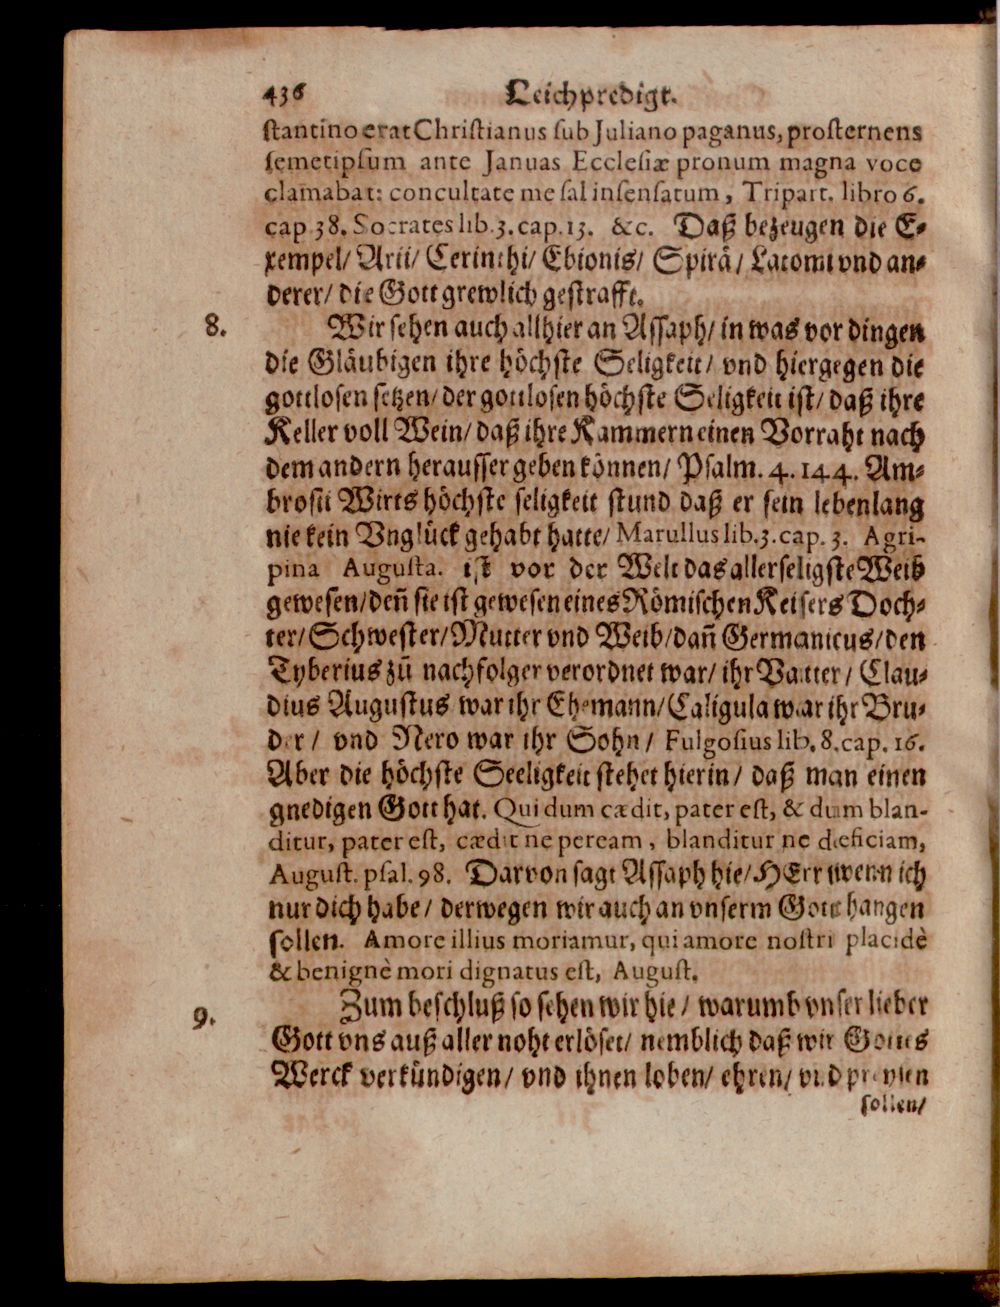 436 Leichpredigt.
stantino erat Christianus sub Juliano paganus, prosternens
semetipsum ante Januas Ecclesiæ pronum magna voce
clamabat: concultate me sal insensatum, Tripart. libro 6.
cap 38. Socrates lib. 3. cap. 13. &c. Daß bezeugen die E-
xempel/ Arii/ Cerinthi/ Ebionis/ Spiræ/ Latomi vnd an-
derer/ die Gott grewlich gestrafft.
8. Wir sehen auch allhier an Assaph/ in was vor dingen
die Gläubigen ihre höchste Seligkeit/ vnd hiergegen die
gottlosen setzen/ der gottlosen höchste Seligkeit ist/ daß ihre
Keller voll Wein/ daß ihre Kammern einen Vorraht nach
dem andern herausser geben können/ Psalm. 4. 144. Am-
brosii Wirts höchste seligkeit stund daß er sein lebenlang
nie kein Vnglück gehabt hatte/ Marullus lib. 3. cap. 3. Agri-
pina Augusta. ist vor der Welt das allerseligste Weib
gewesen/ deñ sie ist gewesen eines Römischen Keisers Doch-
ter/ Schwester/ Mutter vnd Weib/ dañ Germanicus/ den
Tyberius zū nachfolger verordnet war/ ihr Vatter/ Clau-
dius Augustus war ihr Ehemann/ Caligula war ihr Bru-
der/ vnd Nero war ihr Sohn/ Fulgosius lib. 8. cap. 16.
Aber die höchste Seeligkeit stehet hierin/ daß man einen
gnedigen Gott hat. Qui dum cædit, pater est, & dum blan-
ditur, pater est, cædit ne peream, blanditur ne deficiam,
August. psal. 98. Darvon sagt Assaph hie/ HErr wenn ich
nur dich habe/ derwegen wir auch an vnserm Gott hangen
sollen. Amore illius moriamur, qui amore nostri placidè
& benignè mori dignatus est, August.
9. Zum beschluß so sehen wir hie/ warumb vnser lieber
Gott vns auß aller noht erlöset/ nemblich daß wir Gottes
Werck verkündigen/ vnd ihnen loben/ ehren/ vnd preysen
sollen/